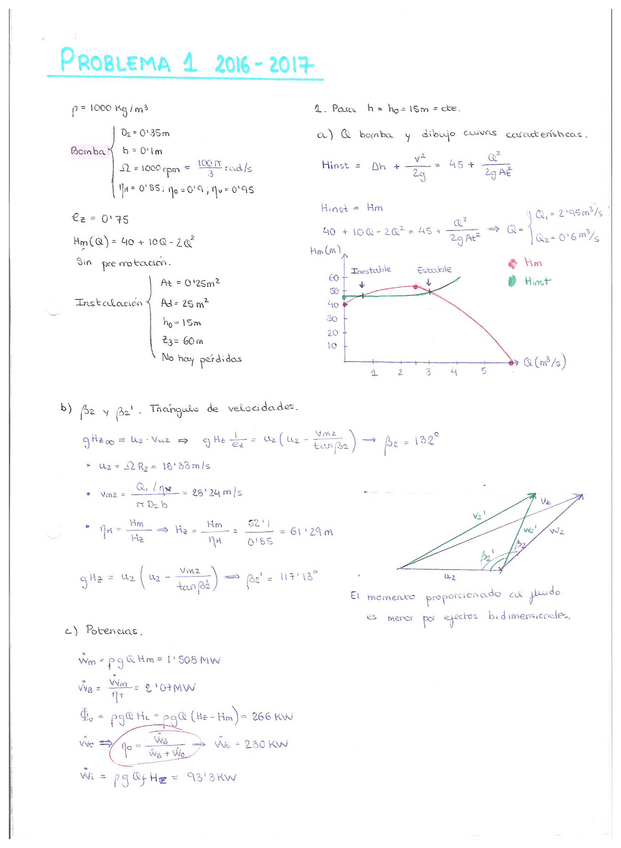 PROBLEMA 1 2016-2017
ρ = 1000 Kg/m³
Bomba
D₂ = 0'35m
b = 0'1m
Ω = 1000 rpm = 100π/3 rad/s
η_H = 0'85; η_0 = 0'9; η_v = 0'95
ε_z = 0'75
Hm(Q) = 40 + 10Q - 2Q²
Sin prerrotación.
Instalación
At = 0'25m²
Ad = 25 m²
h₀ = 15m
z₃ = 60m
No hay pérdidas
1. Para h = h₀ = 15m = cte.
a) Q bomba y dibujo curvas características.
Hinst = Δh + v²/2g = 45 + Q²/2gAt²
Hinst = Hm
40 + 10Q - 2Q² = 45 + Q²/2gAt² ⇒ Q = { Q₁ = 2'95m³/s
Q₂ = 0'6m³/s
Hm(m)
Inestable
Estable
Hm
Hinst
60
50
40
30
20
10
1 2 3 4 5
Q(m³/s)
b) β₂ y β₂'. Triángulo de velocidades.
gHz∞ = u₂·Vu₂ ⇒ gHz 1/ε_z = u₂(u₂ - Vm₂/tanβ₂) → β₂ = 132°
• u₂ = ΩR₂ = 18'33m/s
• Vm₂ = Q₁/η_v / πD₂b = 28'24m/s
• η_H = Hm/Hz ⇒ Hz = Hm/η_H = 52'1/0'85 = 61'29m
gHz = u₂(u₂ - Vm₂/tanβ₂') ⇒ β₂' = 117'13°
V₂'
V₂
w₂'
w₂
β₂'
β₂
u₂
El momento proporcionado al fluido
es menor por efectos bidimensionales.
c) Potencias.
Ẇm = ρgQHm = 1'508MW
Ẇ_B = Ẇm/η_T = 2'07MW
Φ̇v = ρgQH_L = ρgQ(Hz - Hm) = 266KW
Ẇo ⇒ η_0 = Ẇ_B / Ẇ_B + Ẇo → Ẇo = 230KW
Ẇi = ρgQf Hz = 93'3KW